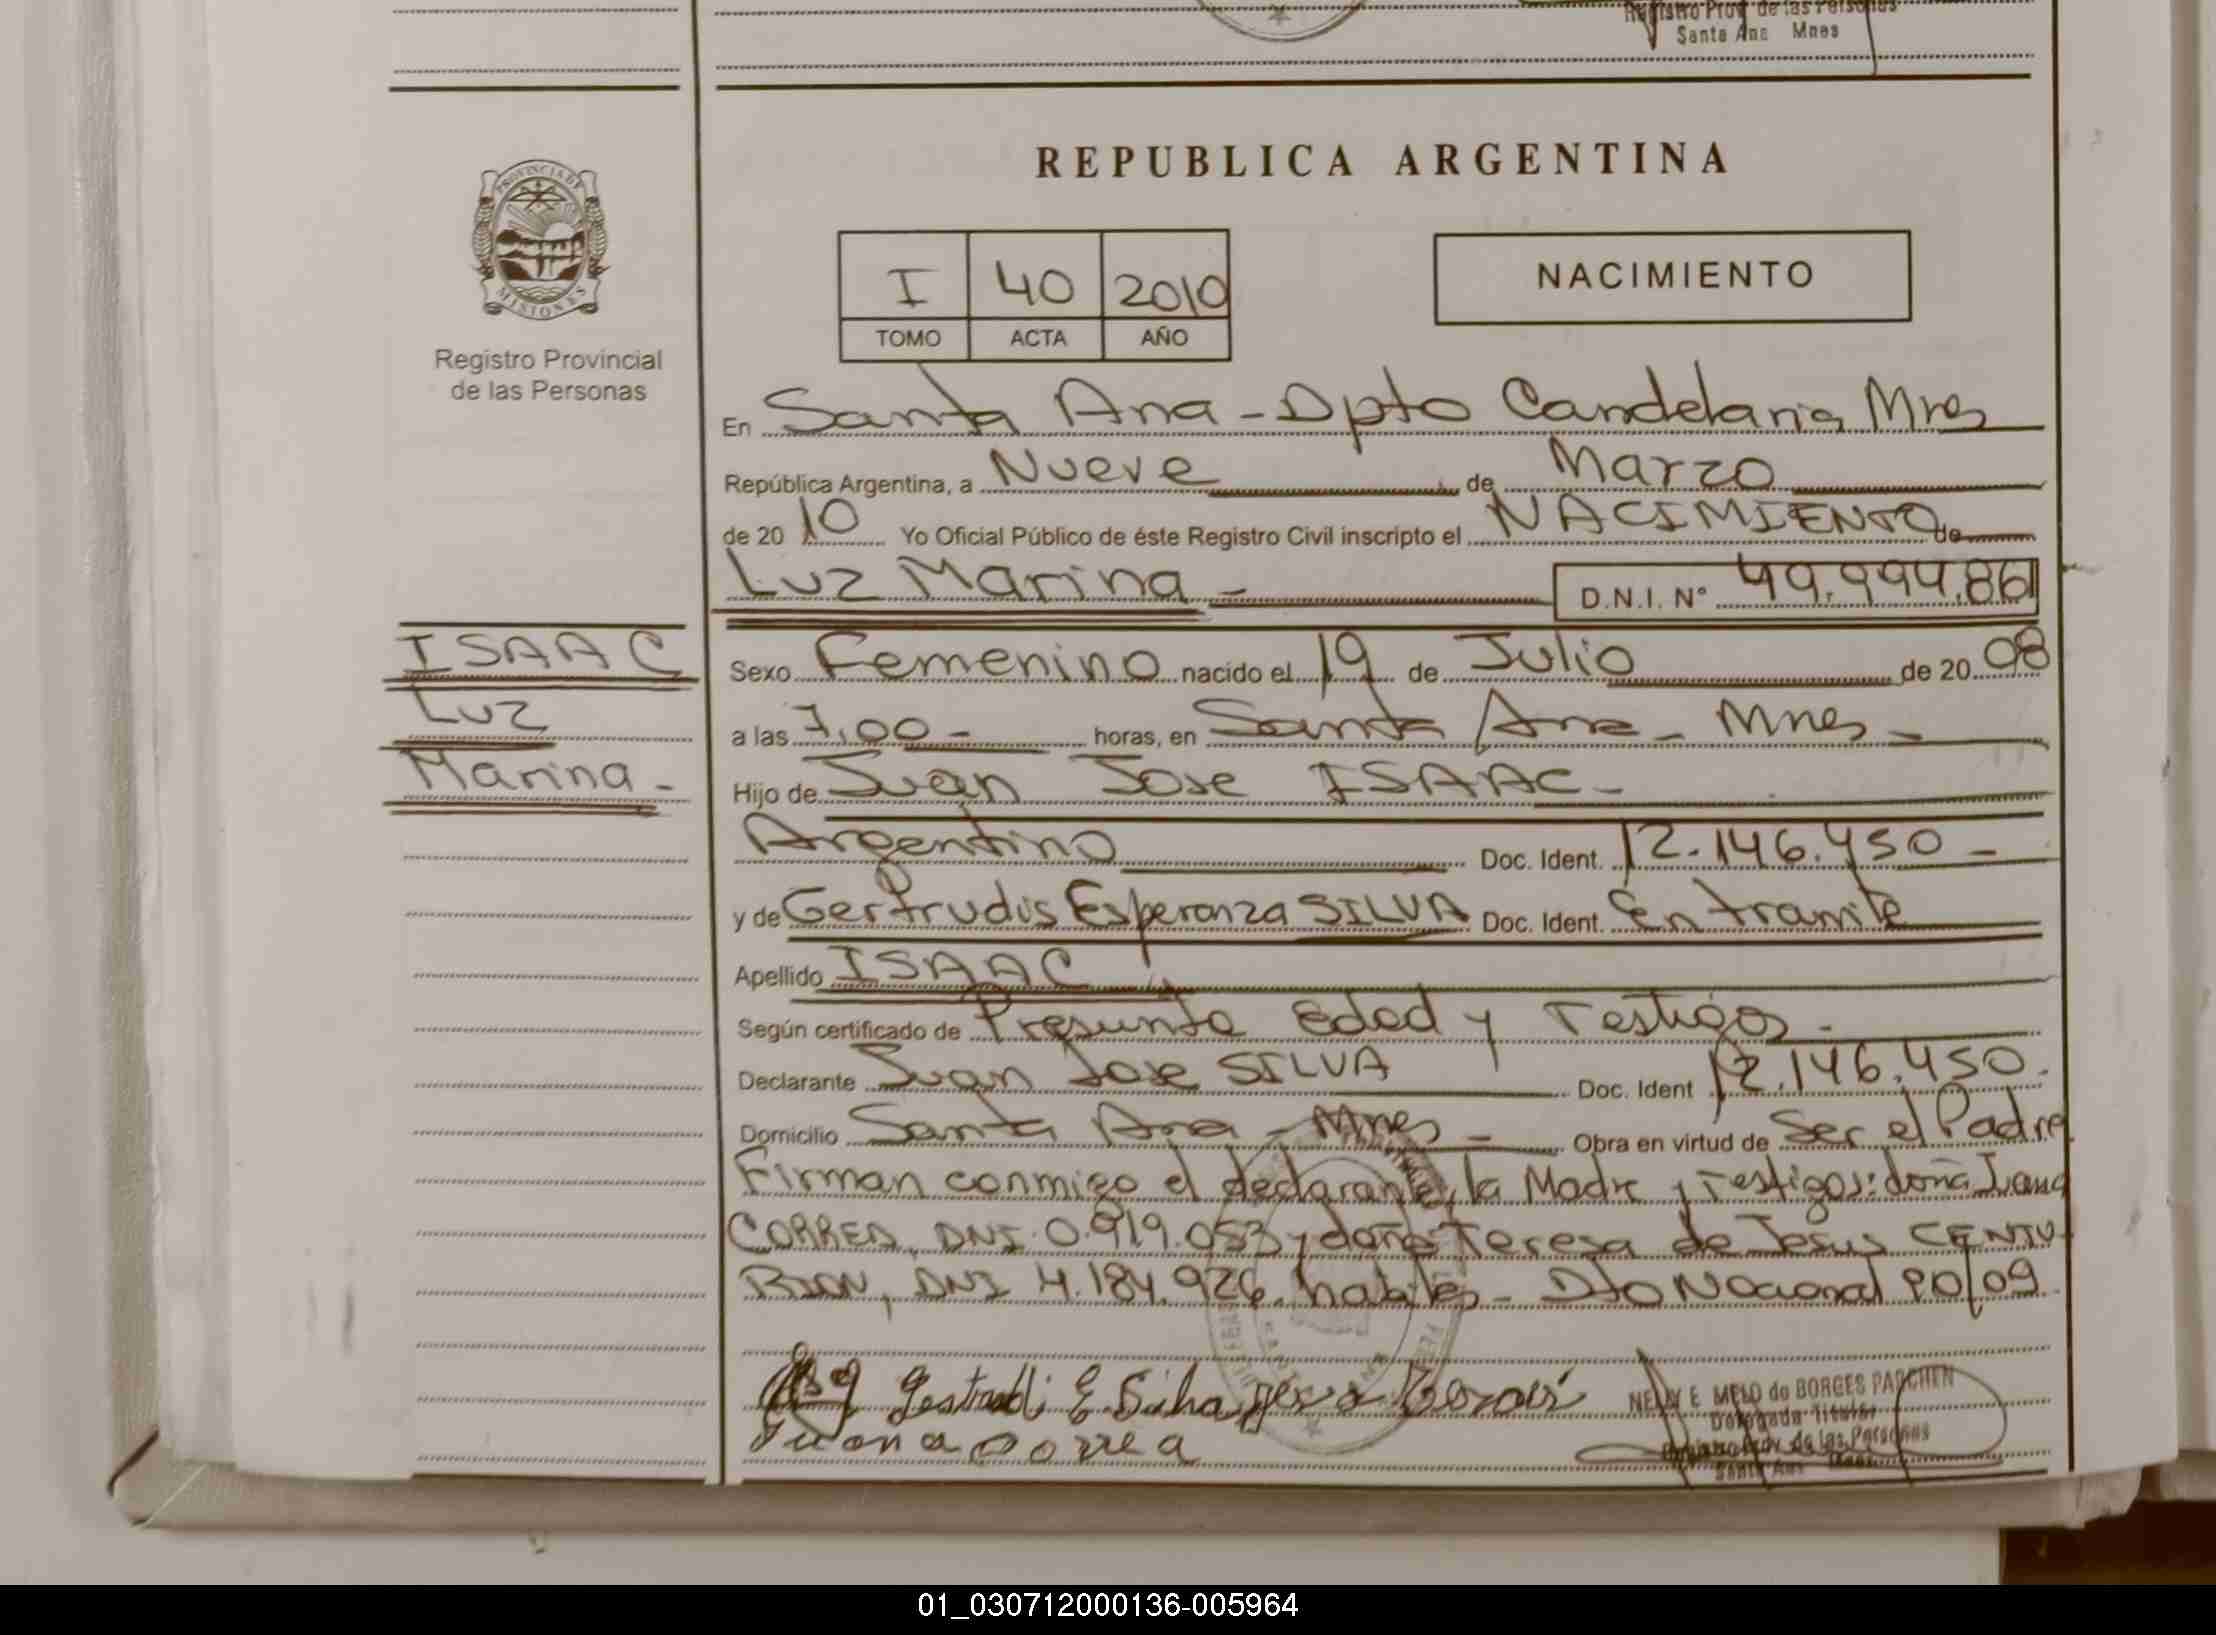 Registro Prov de las Personas
Santa Ana Mnes
REPUBLICA ARGENTINA
PROVINCIA DE
MISIONES
Registro Provincial
de las Personas
I 40 2010
TOMO ACTA AÑO
NACIMIENTO
En Santa Ana - Dpto Candelaria Mnes
República Argentina, a Nueve de Marzo
de 20 10 Yo Oficial Público de éste Registro Civil inscripto el NACIMIENTO de
Luz Marina - D.N.I. Nº 49.994.861
ISAAC
Luz
Marina -
Sexo Femenino nacido el 19 de Julio de 20 08
a las 7,00 - horas, en Santa Ana - Mnes -
Hijo de Juan Jose ISAAC -
Argentino Doc. Ident. 12.146.450 -
y de Gertrudis Esperanza SILVA Doc. Ident. En tramite
Apellido ISAAC
Según certificado de Presunta Edad y Testigos -
Declarante Juan Jose SILVA Doc. Ident 12.146.450.
Domicilio Santa Ana - Mnes - Obra en virtud de Ser el Padre
Firman conmigo el declarante, la Madre y Testigos: doña Juana
CORREA, DNI 0.919.053 y doña Teresa de Jesus CENTU
RION, DNI 4.184.926. habiles - Dto Nacional 90/09
Gertrudi E. Silva
Juana correa
NELLY E. MELO de BORGES PARCHEN
Delegada Titular
Registro Prov. de las Personas
Santa Ana Mnes
01_030712000136-005964